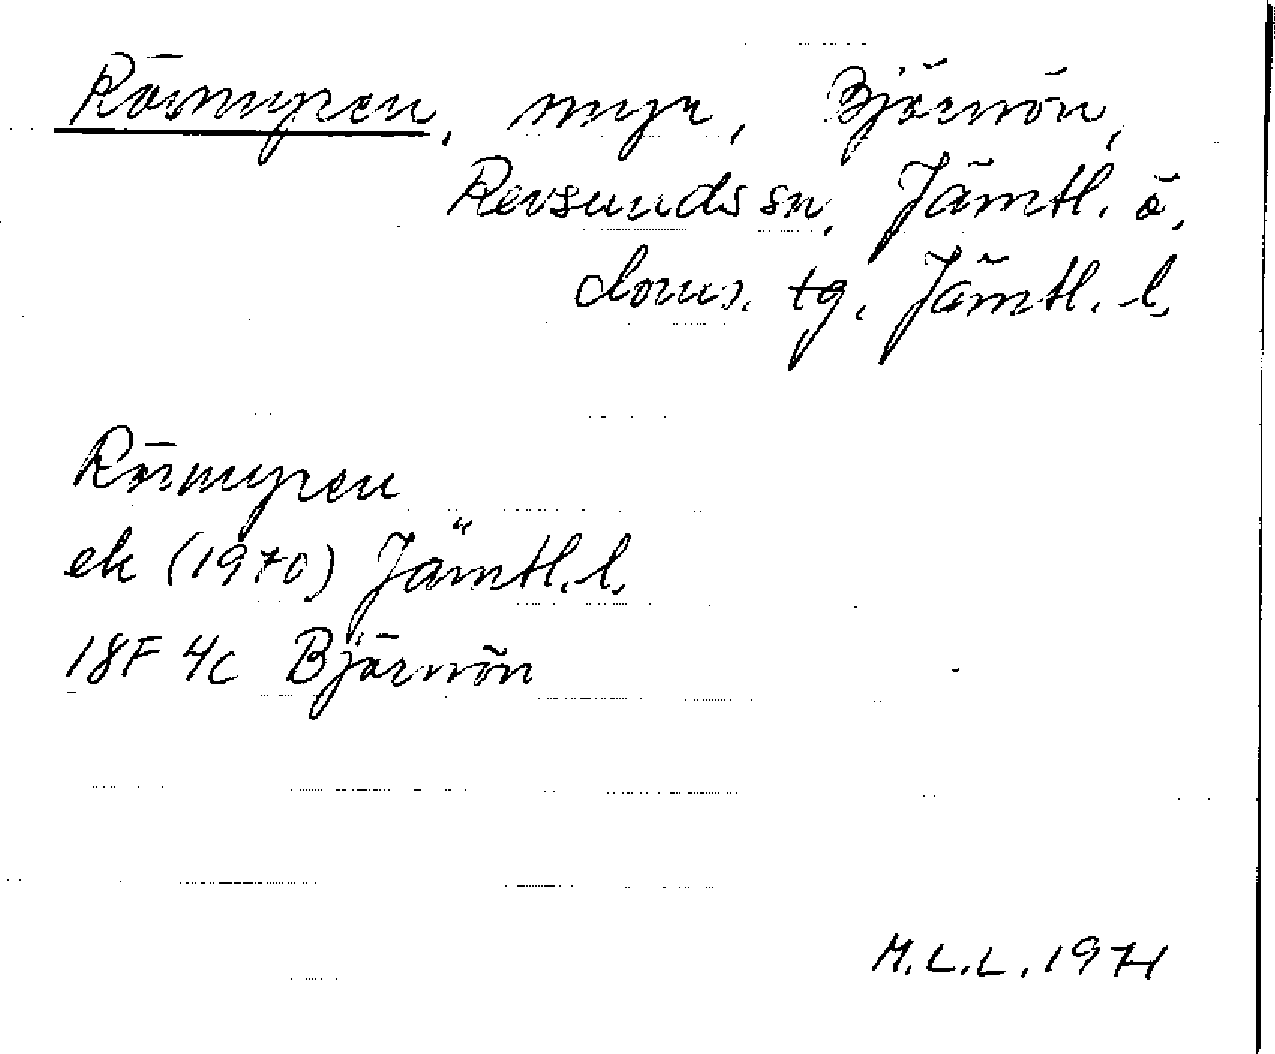 Rörmyren, myr, Björnön,
Revsunds sn, Jämtl. ö.
doms. tg. Jämtl. l.
Rörmyren
ek (1970) Jämtl. l.
18F 4c Björnön
M.L.L. 1971